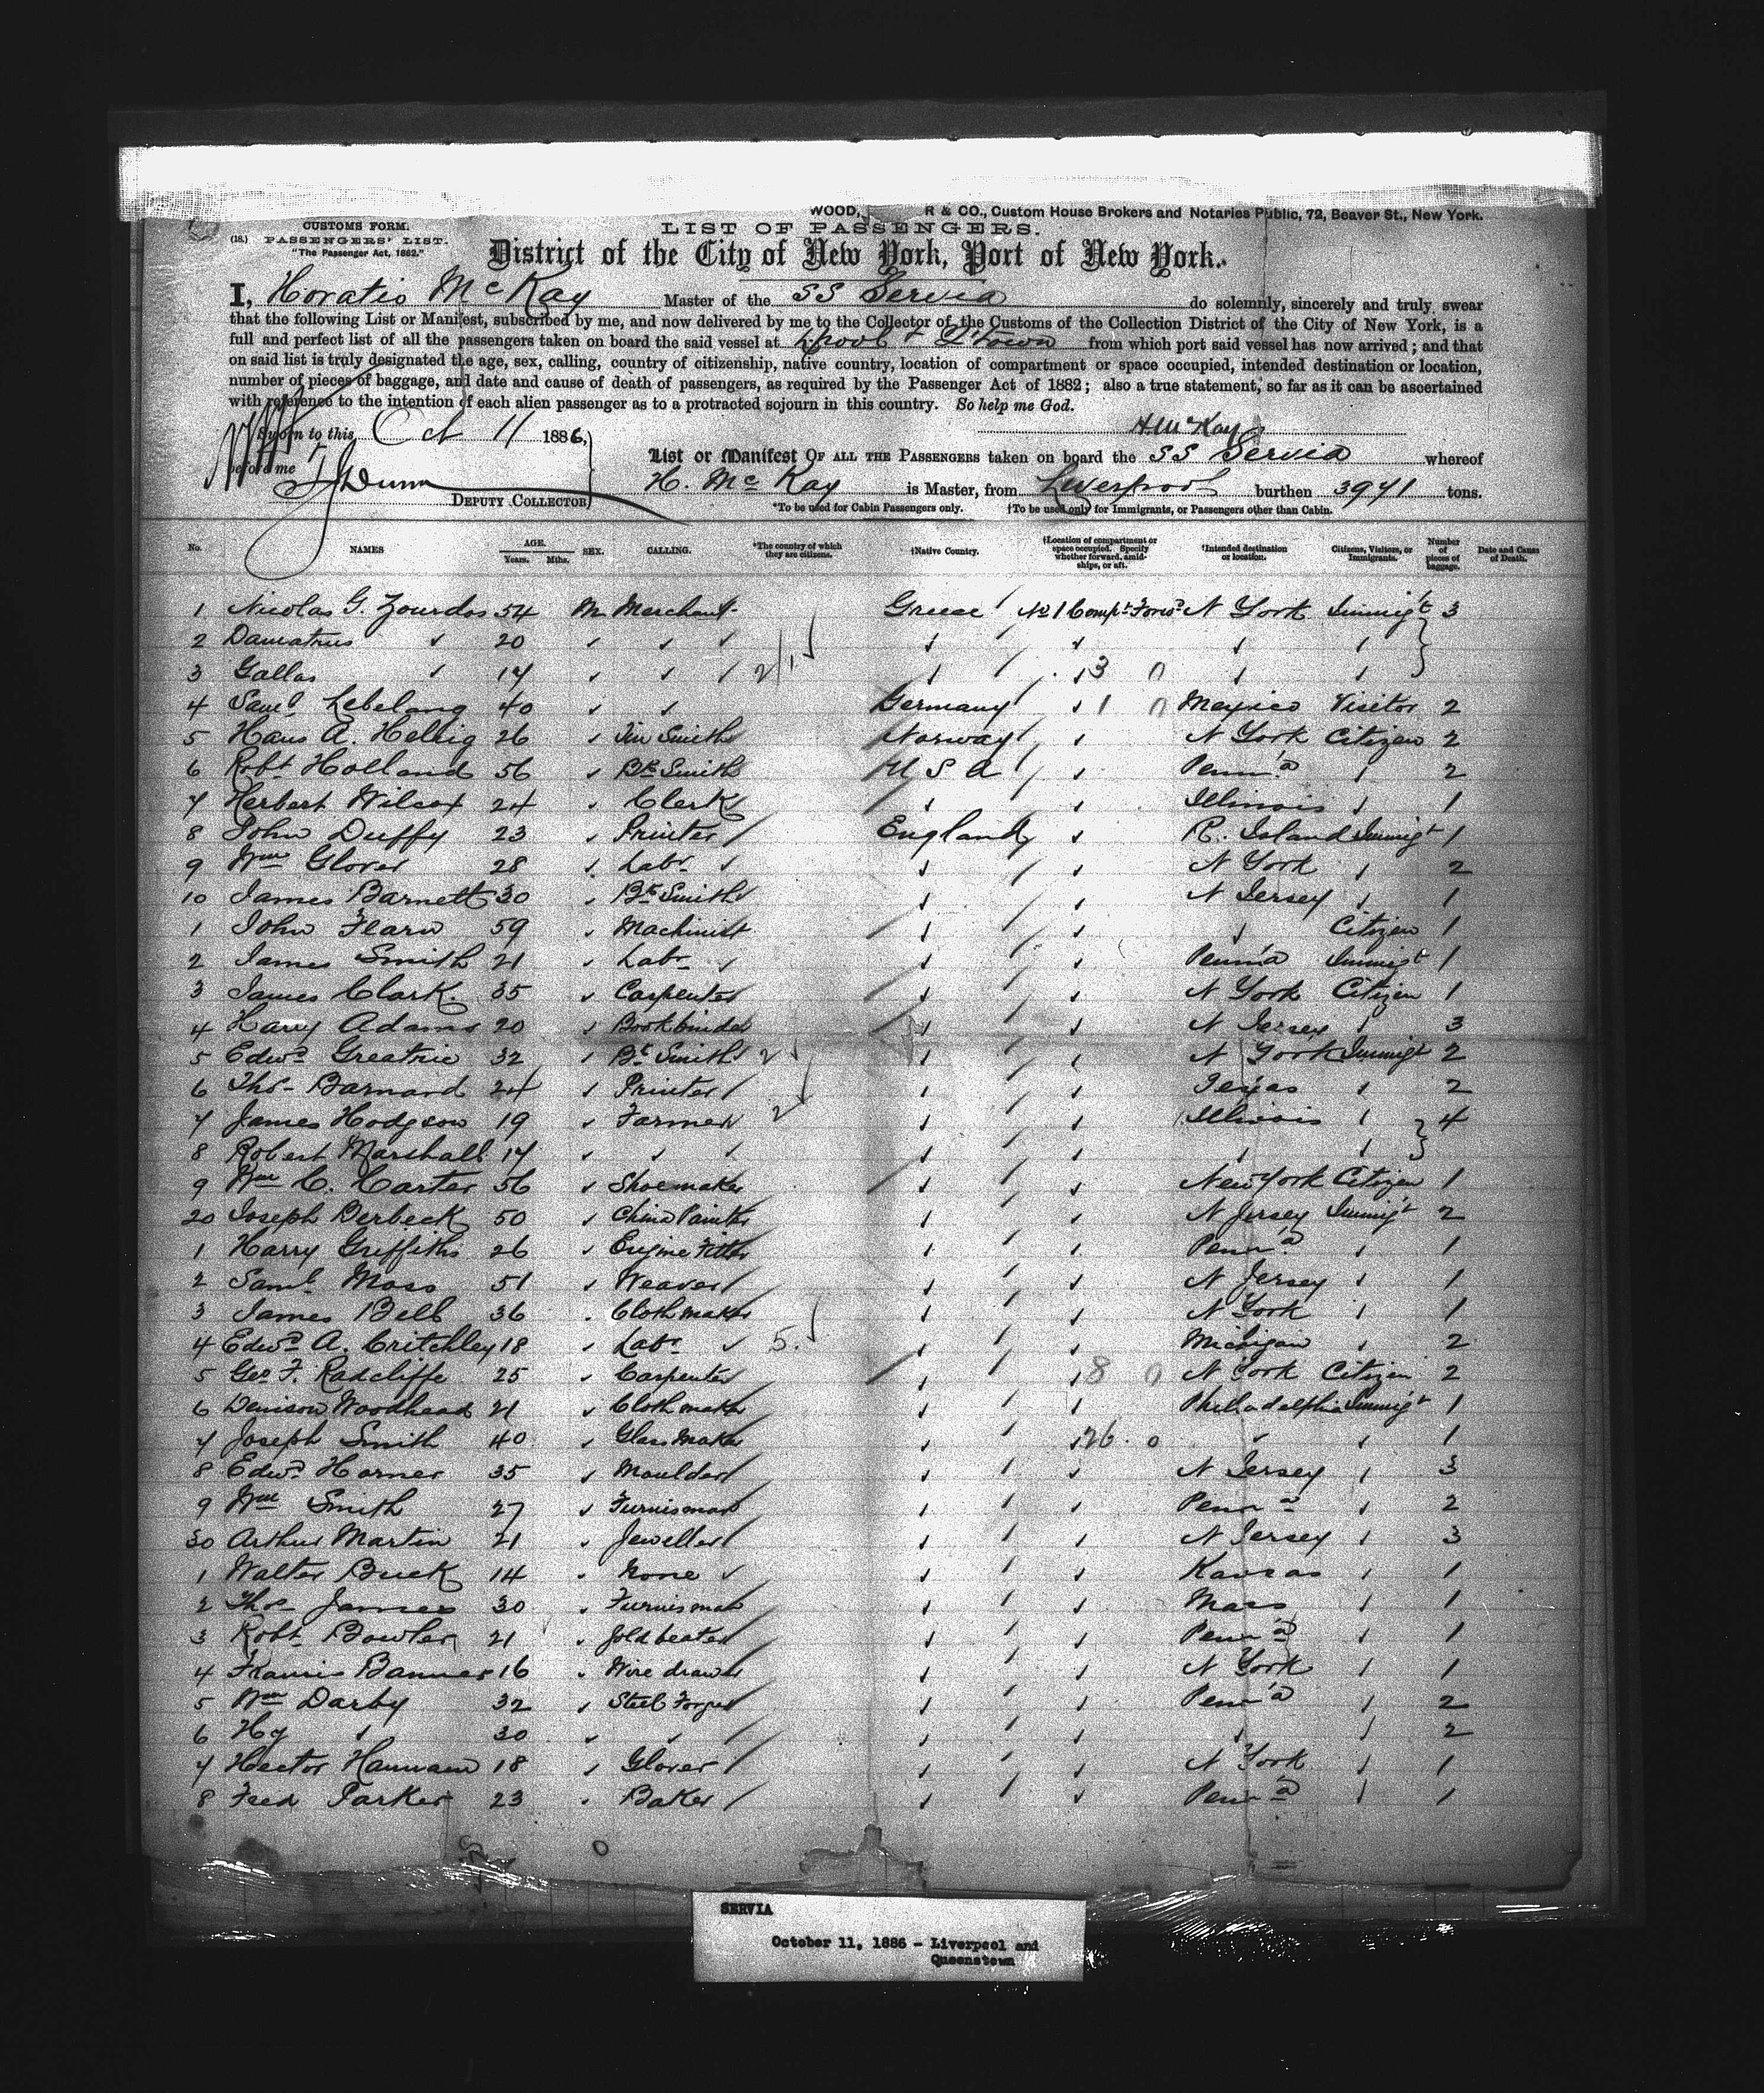 WOOD, R & CO., Custom House Brokers and Notaries Public, 72, Beaver St., New York.
CUSTOMS FORM.
(18.) PASSENGERS' LIST.
"The Passenger Act, 1882."
LIST OF PASSENGERS.
District of the City of New York, Port of New York.
I, Horatio McKay Master of the SS Servia do solemnly, sincerely and truly swear
that the following List or Manifest, subscribed by me, and now delivered by me to the Collector of the Customs of the Collection District of the City of New York, is a
full and perfect list of all the passengers taken on board the said vessel at L'pool & Q'town from which port said vessel has now arrived; and that
on said list is truly designated the age, sex, calling, country of citizenship, native country, location of compartment or space occupied, intended destination or location,
number of pieces of baggage, and date and cause of death of passengers, as required by the Passenger Act of 1882; also a true statement, so far as it can be ascertained
with reference to the intention of each alien passenger as to a protracted sojourn in this country. So help me God.
Sworn to this Oct 11 1886, H McKay
before me
List or Manifest OF ALL THE PASSENGERS taken on board the SS Servia whereof
Dunn
H. McKay is Master, from Liverpool burthen 3941 tons.
DEPUTY COLLECTOR
*To be used for Cabin Passengers only. †To be used only for Immigrants, or Passengers other than Cabin.
No. NAMES AGE. Years. Mths. SEX. CALLING. *The country of which they are citizens. †Native Country. †Location of compartment or space occupied. Specify whether forward, amidships, or aft. †Intended destination or location. Citizens, Visitors, or Immigrants. Number of pieces of baggage. Date and Cause of Death.
1 Nicolas G. Zourdos 54 M Merchant Greece No 1 Compt Forwd N York Immigt 3
2 Damatrus " 20 " " " " " " "
3 Gallas " 14 " " " " 3 0 " "
4 Saml Lebelang 40 " " Germany " 1 0 Mexico Visitor 2
5 Hans A. Helsig 26 " Tin Smith Norway " N York Citizen 2
6 Robt Holland 56 " Bk Smith U S A " Penna " 2
7 Herbert Wilcox 24 " Clerk " " Illinois " 1
8 John Duffy 23 " Printer England " R. Island Immigt 1
9 Wm Glover 28 " Labr " " N York " 2
10 James Barnett 30 " Bk Smith " " N Jersey " 1
1 John Flarn 59 " Machinist " " " Citizen 1
2 James Smith 21 " Labr " " Penna Immigt 1
3 James Clark. 35 " Carpenter " " N York Citizen 1
4 Harry Adams 20 " Bookbinder " " N Jersey " 3
5 Edwd Greatrie 32 " Bk Smith 2 " " N York Immigt 2
6 Thos Barnard 24 " Printer " " Texas " 2
7 James Hodgson 19 " Farmer 2 " " Illinois " 4
8 Robert Marshall 14 " " " " " "
9 Wm C. Carter 56 " Shoemaker " " New York Citizen 1
20 Joseph Derbeck 50 " China Painter " " N Jersey Immigt 2
1 Harry Griffiths 26 " Engine Fitter " " Penna " 1
2 Saml Moss 51 " Weaver " " N Jersey " 1
3 James Bell 36 " Clothmaker " " N York " 1
4 Edwd A. Critchley 18 " Labr 5. " " Michigan " 2
5 Geo F. Radcliffe 25 " Carpenter " " 8 0 N York Citizen 2
6 Denison Woodhead 21 " Clothmaker " " Philadelphia Immigt 1
7 Joseph Smith 40 " Glass Maker " " 26 0 " " 1
8 Edwd Horner 35 " Moulder " " N Jersey " 3
9 Wm Smith 27 " Furnisman " " Penna " 2
30 Arthur Martin 21 " Jeweller " " N Jersey " 3
1 Walter Buck 14 " None " " Kansas " 1
2 Thos James 30 " Furnisman " " Mass " 1
3 Robt Bowler 21 " Goldbeater " " Penna " 1
4 Francis Banner 16 " Wire drawer " " N York " 1
5 Wm Darby 32 " Steel Forger " " Penna " 2
6 Hy " 30 " " " " " " 2
7 Hector Hannam 18 " Glover " " N York " 1
8 Fred Parker 23 " Baker " " Penna " 1
SERVIA
October 11, 1886 - Liverpool and
Queenstown